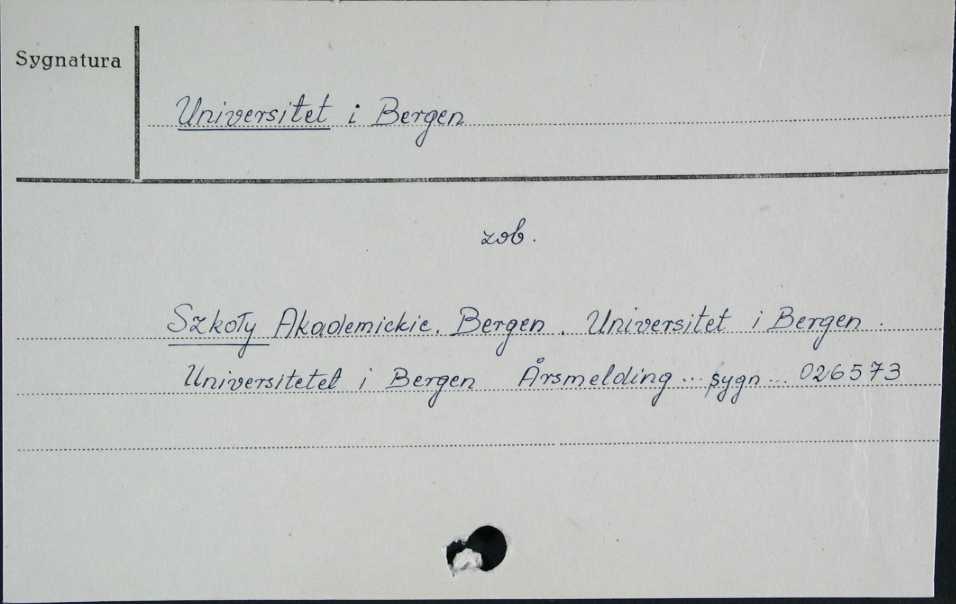 Sygnatura
Universitet i Bergen
zob.
Szkoły Akademickie. Bergen. Universitet i Bergen.
Universitetet i Bergen Årsmelding ... sygn ... 026573